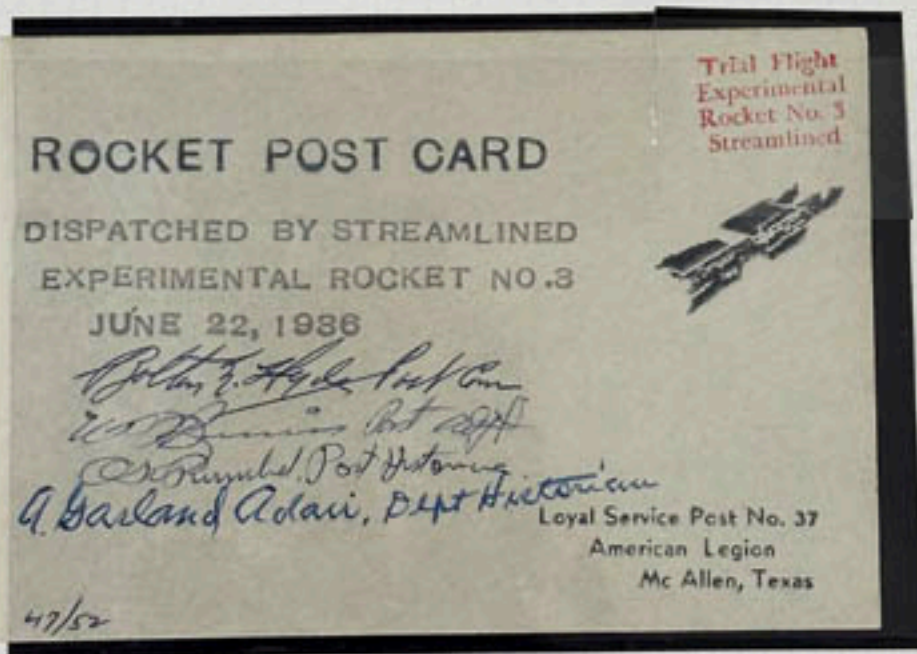 Trial Flight
Experimental
Rocket No. 3
Streamlined
ROCKET POST CARD
DISPATCHED BY STREAMLINED
EXPERIMENTAL ROCKET NO.3
JUNE 22, 1936
Hyde Post Com
Post Adjt
Post Historian
A. Garland Adair, Dept Historian
Loyal Service Post No. 37
American Legion
Mc Allen, Texas
47/52